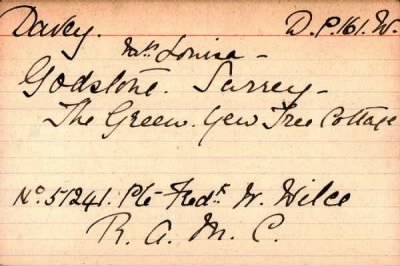 Davey. D.P.161.W.
Mrs Louisa -
Godstone. Surrey -
The Green. Yew Tree Cottage
No. 51241. Pte Fredk W. Wilce
R. A. M. C.